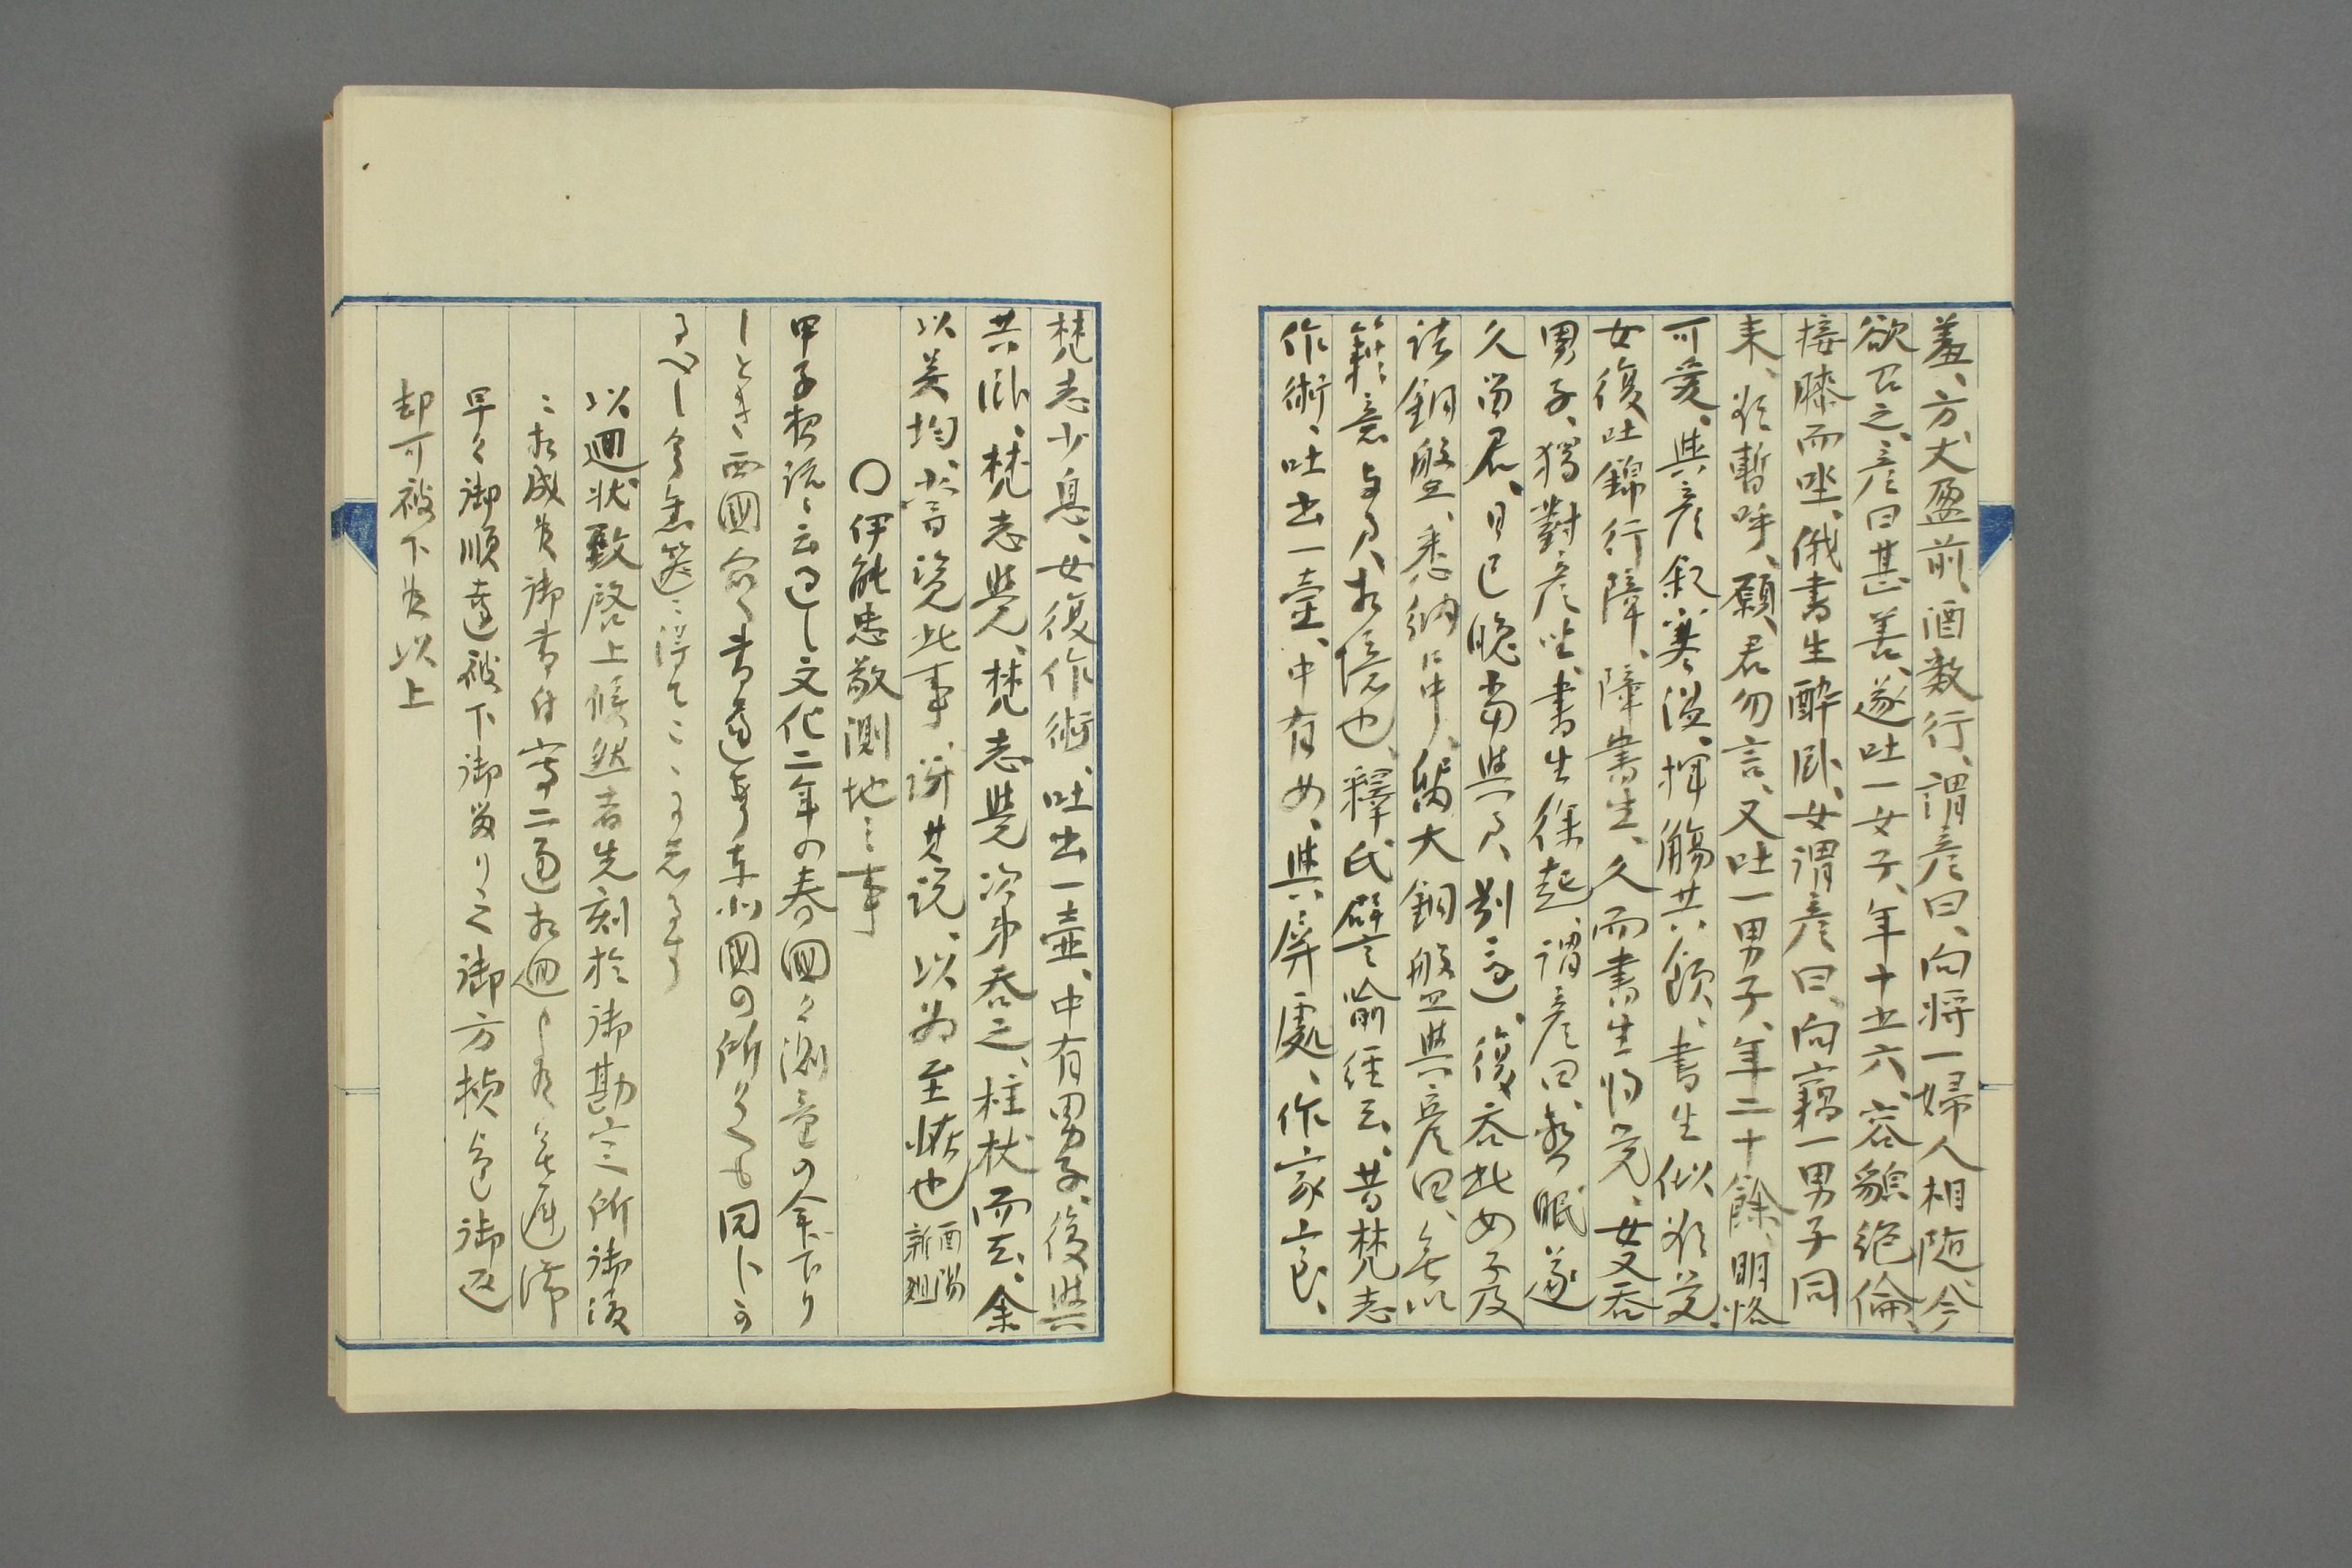 羞、方丈盈前、酒数行、謂彦曰、向将一婦人相随、今
欲召之、彦曰甚善、遂吐一女子、年十五六、容貌絶倫、
接膝而坐、俄書生酔卧、女謂彦曰、向竊一男子同
来、欲暫呼、願君勿言、又吐一男子、年二十餘、明恪
可愛、與彦叙寒温、揮觴共飲、書生似欲覚、
女復吐錦行障、障書生、久而書生将覚、女又吞
男子、獨對彦坐、書生徐起、謂彦曰、暫眠遂
久留君、日已晩当與君別、還復吞此女子及
諸銅盤、悉納口中、留大銅盤與彦曰、無以
籍意、与君相憶也、釋氏譬喩経云、昔梵志
作術、吐出一壷、中有女、與屏處、作家室、
梵志少息、女復作術、吐出一壷、中有男子、復與
共卧、梵志覺、梵志覺次第吞之、柱杖而去、余
以呉均嘗覧此事、訝其説、以為至恠也 酉陽新俎
〇伊能忠敬測地之事
甲子夜話ニ云過し文化二年の春国々測量の命下り
しとき、西国
東北国の所々も同トか
るべし今
以廻状致啓上候然者先刻於御勘定所御渡
ニ相成候御書付写二通相廻し
無遅滞
早々御順達被下御留りより御方様
御返
却可被下候以上